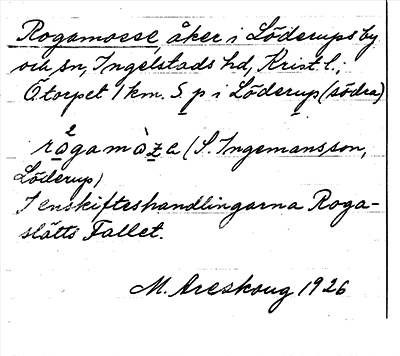 Rogamosse, åker i Löderups by
och sn, Ingelstads hd, Krist. l.;
Ötorpet 1 km. S p i Löderup (södra)
2
rågamòza (S. Ingemansson,
Löderup)
I enskifteshandlingarna Roga-
slätts Fallet.
M. Areskoug 1926